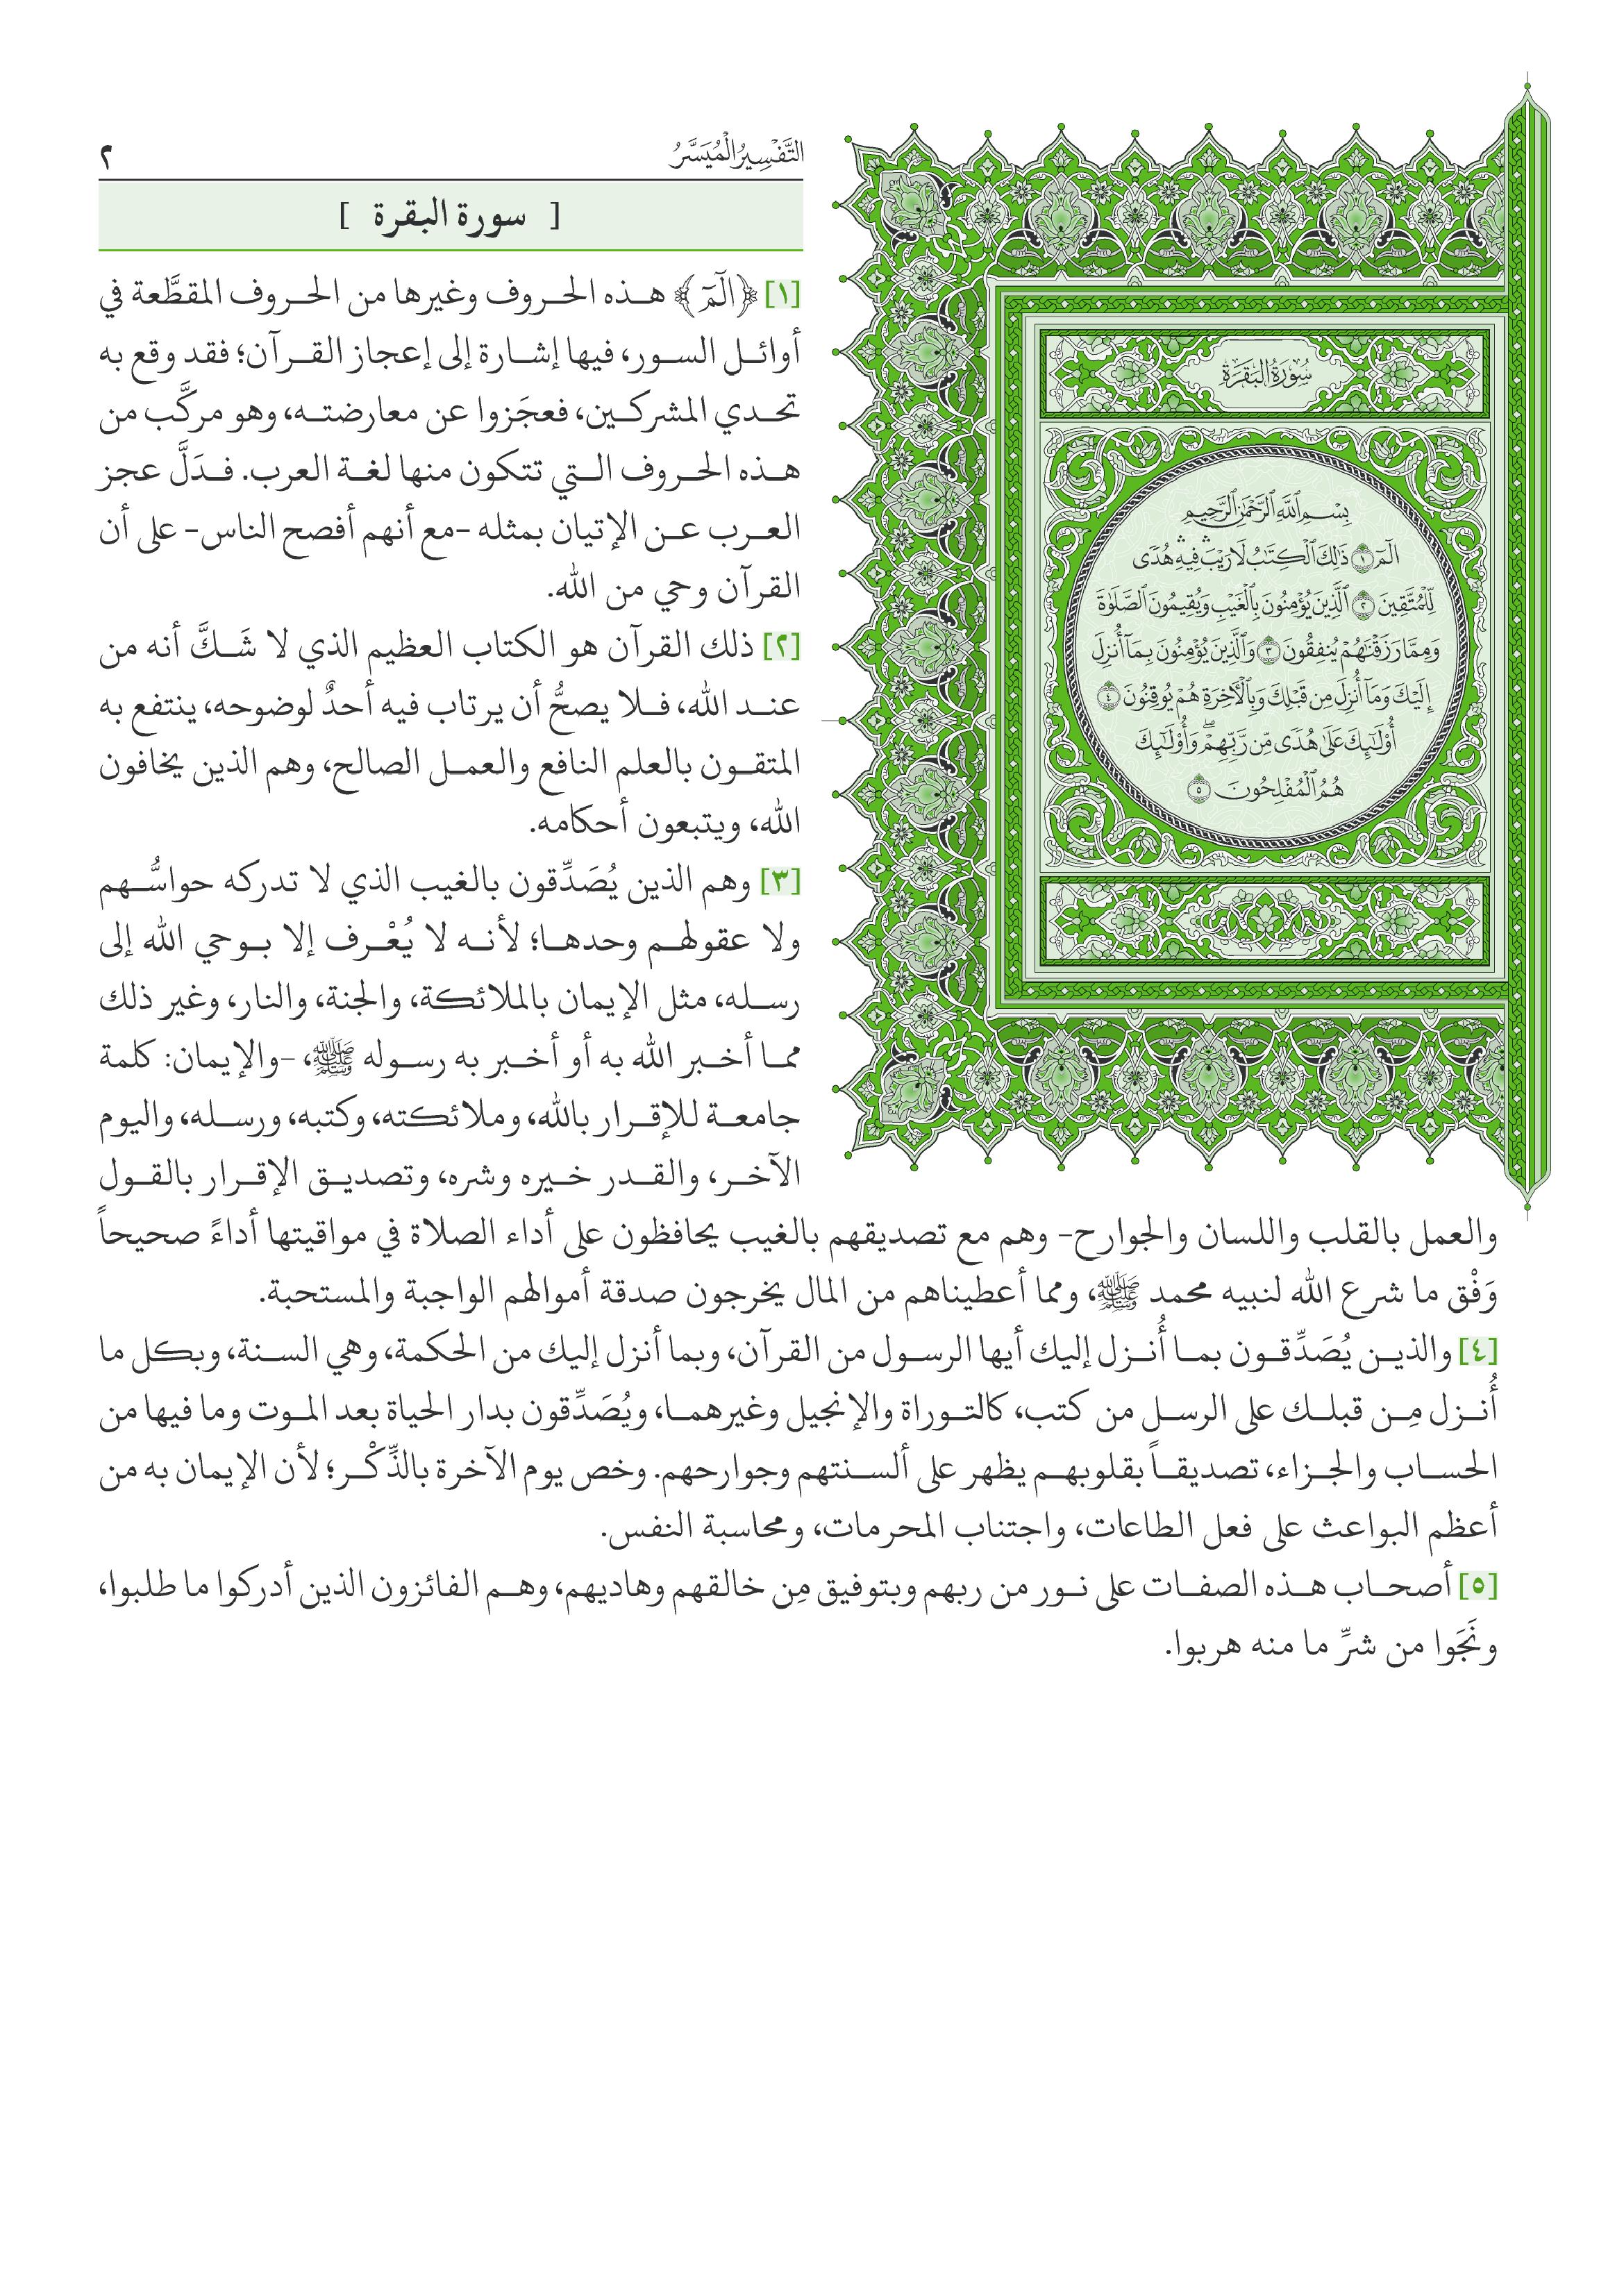 التَّفْسِيرُ الْمُيَسَّرُ
٢
سُورَةُ البَقَرَةِ
بِسْمِ ٱللَّهِ ٱلرَّحْمَٰنِ ٱلرَّحِيمِ
الٓمٓ ١ ذَٰلِكَ ٱلْكِتَٰبُ لَا رَيْبَ ۛ فِيهِ ۛ هُدًى
لِّلْمُتَّقِينَ ٢ ٱلَّذِينَ يُؤْمِنُونَ بِٱلْغَيْبِ وَيُقِيمُونَ ٱلصَّلَوٰةَ
وَمِمَّا رَزَقْنَٰهُمْ يُنفِقُونَ ٣ وَٱلَّذِينَ يُؤْمِنُونَ بِمَآ أُنزِلَ
إِلَيْكَ وَمَآ أُنزِلَ مِن قَبْلِكَ وَبِٱلْءَاخِرَةِ هُمْ يُوقِنُونَ ٤
أُوْلَٰٓئِكَ عَلَىٰ هُدًى مِّن رَّبِّهِمْ ۖ وَأُوْلَٰٓئِكَ
هُمُ ٱلْمُفْلِحُونَ ٥
[ سورة البقرة ]
[١] ﴿الٓمٓ﴾ هذه الحروف وغيرها من الحروف المقطَّعة في
أوائل السور، فيها إشارة إلى إعجاز القرآن؛ فقد وقع به
تحدي المشركين، فعجَزوا عن معارضته، وهو مركَّب من
هذه الحروف التي تتكون منها لغة العرب. فدَلَّ عجز
العرب عن الإتيان بمثله -مع أنهم أفصح الناس- على أن
القرآن وحي من الله.
[٢] ذلك القرآن هو الكتاب العظيم الذي لا شَكَّ أنه من
عند الله، فلا يصحُّ أن يرتاب فيه أحدٌ لوضوحه، ينتفع به
المتقون بالعلم النافع والعمل الصالح، وهم الذين يخافون
الله، ويتبعون أحكامه.
[٣] وهم الذين يُصَدِّقون بالغيب الذي لا تدركه حواسُّهم
ولا عقولهم وحدها؛ لأنه لا يُعْرف إلا بوحي الله إلى
رسله، مثل الإيمان بالملائكة، والجنة، والنار، وغير ذلك
مما أخبر الله به أو أخبر به رسوله ﷺ، -والإيمان: كلمة
جامعة للإقرار بالله، وملائكته، وكتبه، ورسله، واليوم
الآخر، والقدر خيره وشره، وتصديق الإقرار بالقول
والعمل بالقلب واللسان والجوارح- وهم مع تصديقهم بالغيب يحافظون على أداء الصلاة في مواقيتها أداءً صحيحاً
وَفْق ما شرع الله لنبيه محمد ﷺ، ومما أعطيناهم من المال يخرجون صدقة أموالهم الواجبة والمستحبة.
[٤] والذين يُصَدِّقون بما أُنزل إليك أيها الرسول من القرآن، وبما أنزل إليك من الحكمة، وهي السنة، وبكل ما
أُنزل مِن قبلك على الرسل من كتب، كالتوراة والإنجيل وغيرهما، ويُصَدِّقون بدار الحياة بعد الموت وما فيها من
الحساب والجزاء، تصديقاً بقلوبهم يظهر على ألسنتهم وجوارحهم. وخص يوم الآخرة بالذِّكْر؛ لأن الإيمان به من
أعظم البواعث على فعل الطاعات، واجتناب المحرمات، ومحاسبة النفس.
[٥] أصحاب هذه الصفات على نور من ربهم وبتوفيق مِن خالقهم وهاديهم، وهم الفائزون الذين أدركوا ما طلبوا،
ونَجَوا من شرِّ ما منه هربوا.